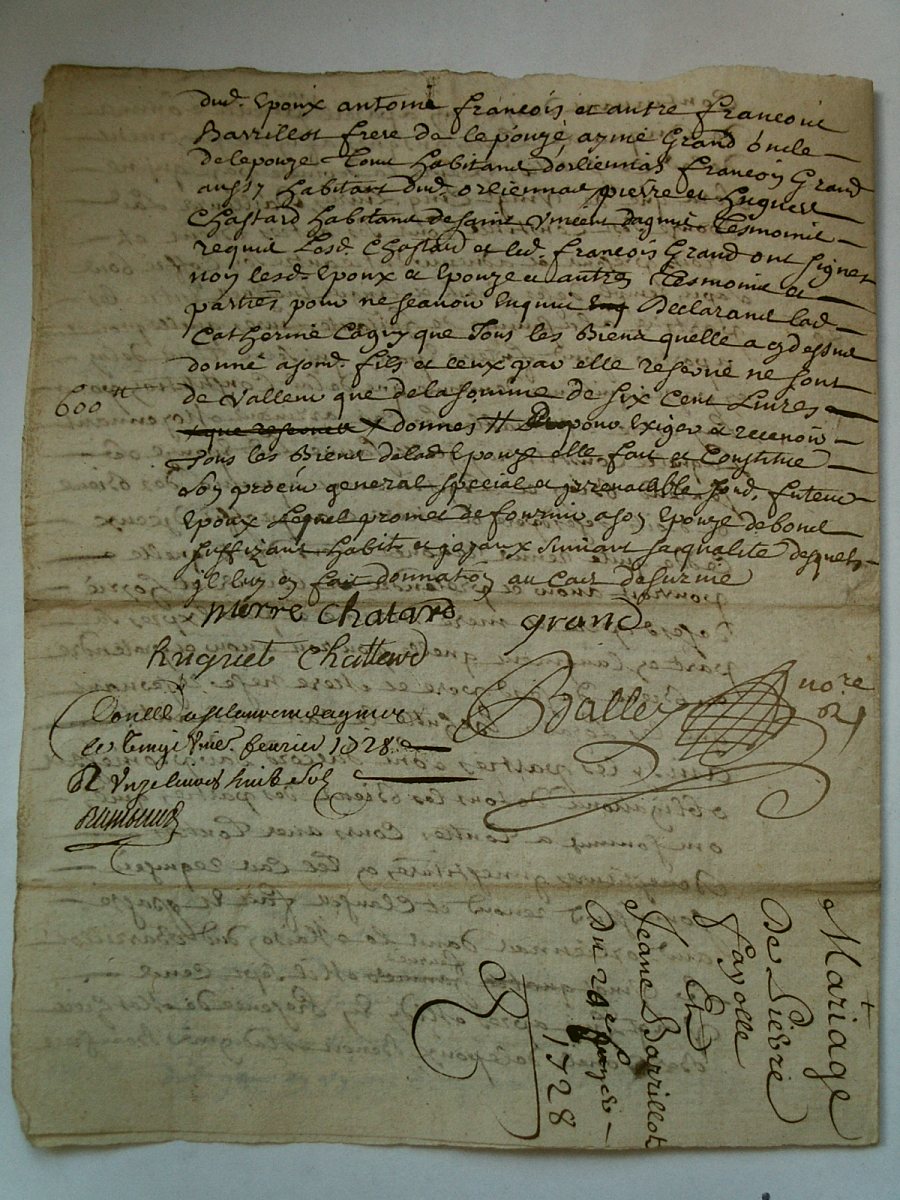 dud. Epoux antoine francois et autre francois
Barrillot frere de lepouze, aymé Grand oncle
de lepouze Tous habitans dorliennas francois Grand
aussy habitant dud. orliennas pierre et huguet
Chastard habitans de saint Vincent dagnie tesmoins
requis Losd. Chastard et led. francois Grand ont signer
non lesd. Epoux et Epouze et autres tesmoins et
parties pour ne scavoir Enquis Declarant lad.
Catherine que Tous les Biens quelle a cy dessus
donné asond. fils et ceux par elle reservé ne sont
de valleur que de la somme de six Cent Livres
600 ₶
donnes # pour Exiger et recevoir
Tous les Biens de lad. Epouze elle fait et Constitue
son procur general special et irrevocable sond. futeur
Epoux Lequel promet de fournir a son Epouze de bons
suffizant habits et joyaux suivant sa qualité desquels
il luy en fait donnation au cas de survie
pierre Chatard grand
huguet Chattard
Balley no.re
Con.lle a st laurent dagnie
le vingt feurier 1728
R Unze livres huit sols
Mariage
De Pierre
fayolle
Et
Jeane Barrillot
Du 20e
1728